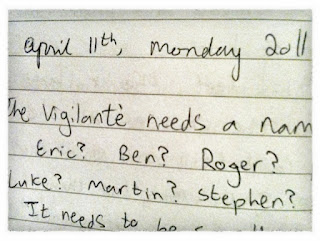 april 11th, monday 2011
The Vigilantè needs a nam
Eric? Ben? Roger?
Luke? Martin? stephen?
It needs to be